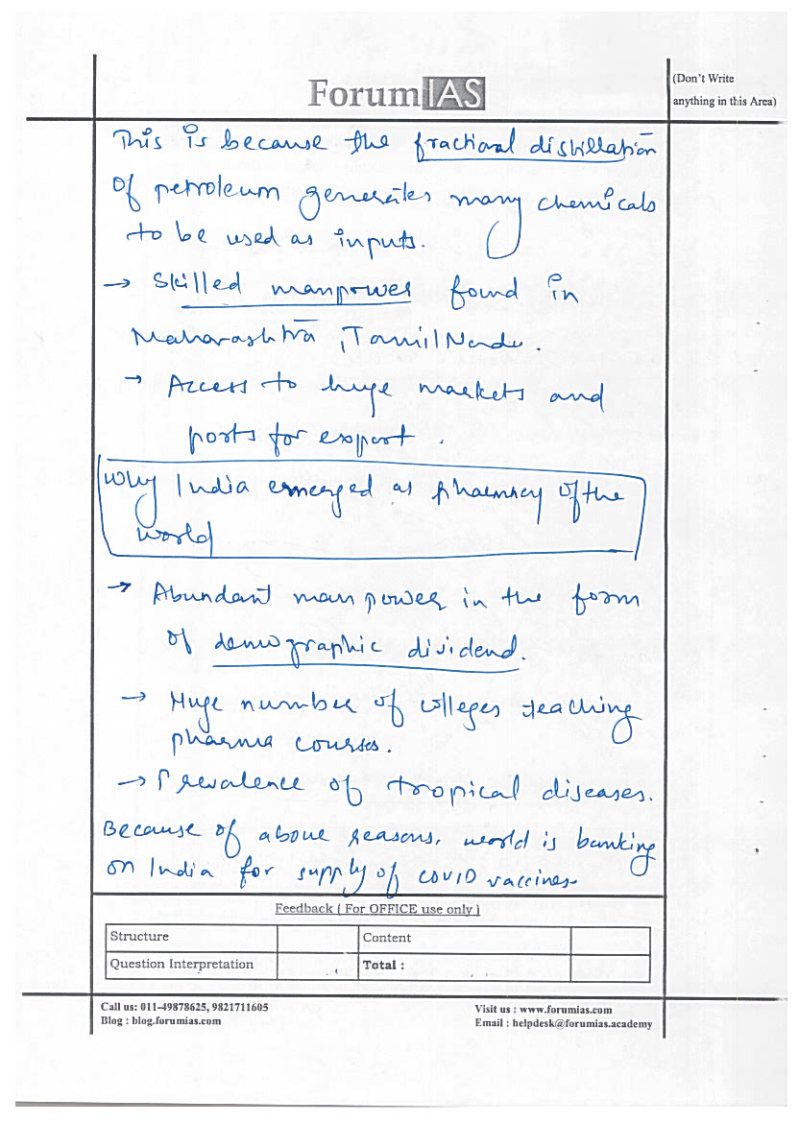 ForumIAS
(Don't Write
anything in this Area)
This is because the fractional distillation
of petroleum generates many chemicals
to be used as inputs.
→ Skilled manpower found in
Maharashtra, Tamil Nadu.
→ Access to huge markets and
ports for export.
Why India emerged as pharmacy of the
world
→ Abundant manpower in the form
of demographic dividend.
→ Huge number of colleges teaching
pharma courses.
→ Prevalence of tropical diseases.
Because of above reasons, world is banking
on India for supply of COVID vaccines.
Feedback ( For OFFICE use only )
Structure
Content
Question Interpretation
Total :
Call us: 011-49878625, 9821711605
Blog : blog.forumias.com
Visit us : www.forumias.com
Email : helpdesk@forumias.academy